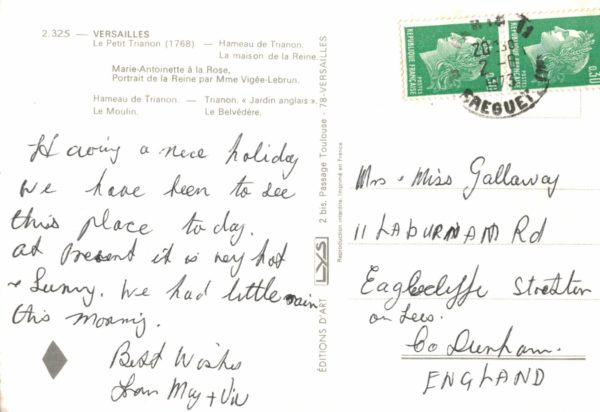 2.325 — VERSAILLES
Le Petit Trianon (1768) — Hameau de Trianon.
La maison de la Reine.
Marie-Antoinette à la Rose,
Portrait de la Reine par Mme Vigée-Lebrun.
Hameau de Trianon. — Trianon. « Jardin anglais ».
Le Moulin. Le Belvédère.
Having a nice holiday
We have been to see
this place today.
at Present it is very hot
+ Sunny. We had little rain
this morning.
Best Wishes
from May + Viv
ÉDITIONS D'ART LYS 2 bis, Passage Toulouse - 78-VERSAILLES
Reproduction interdite. Imprimé en France.
POSTES RÉPUBLIQUE FRANÇAISE
RÉPUBLIQUE FRANÇAISE 0,30
BREGUET
Mrs + Miss Gallaway
11 LABURNAM Rd
Eaglecliffe Stockton
on Tees.
Co Durham.
ENGLAND